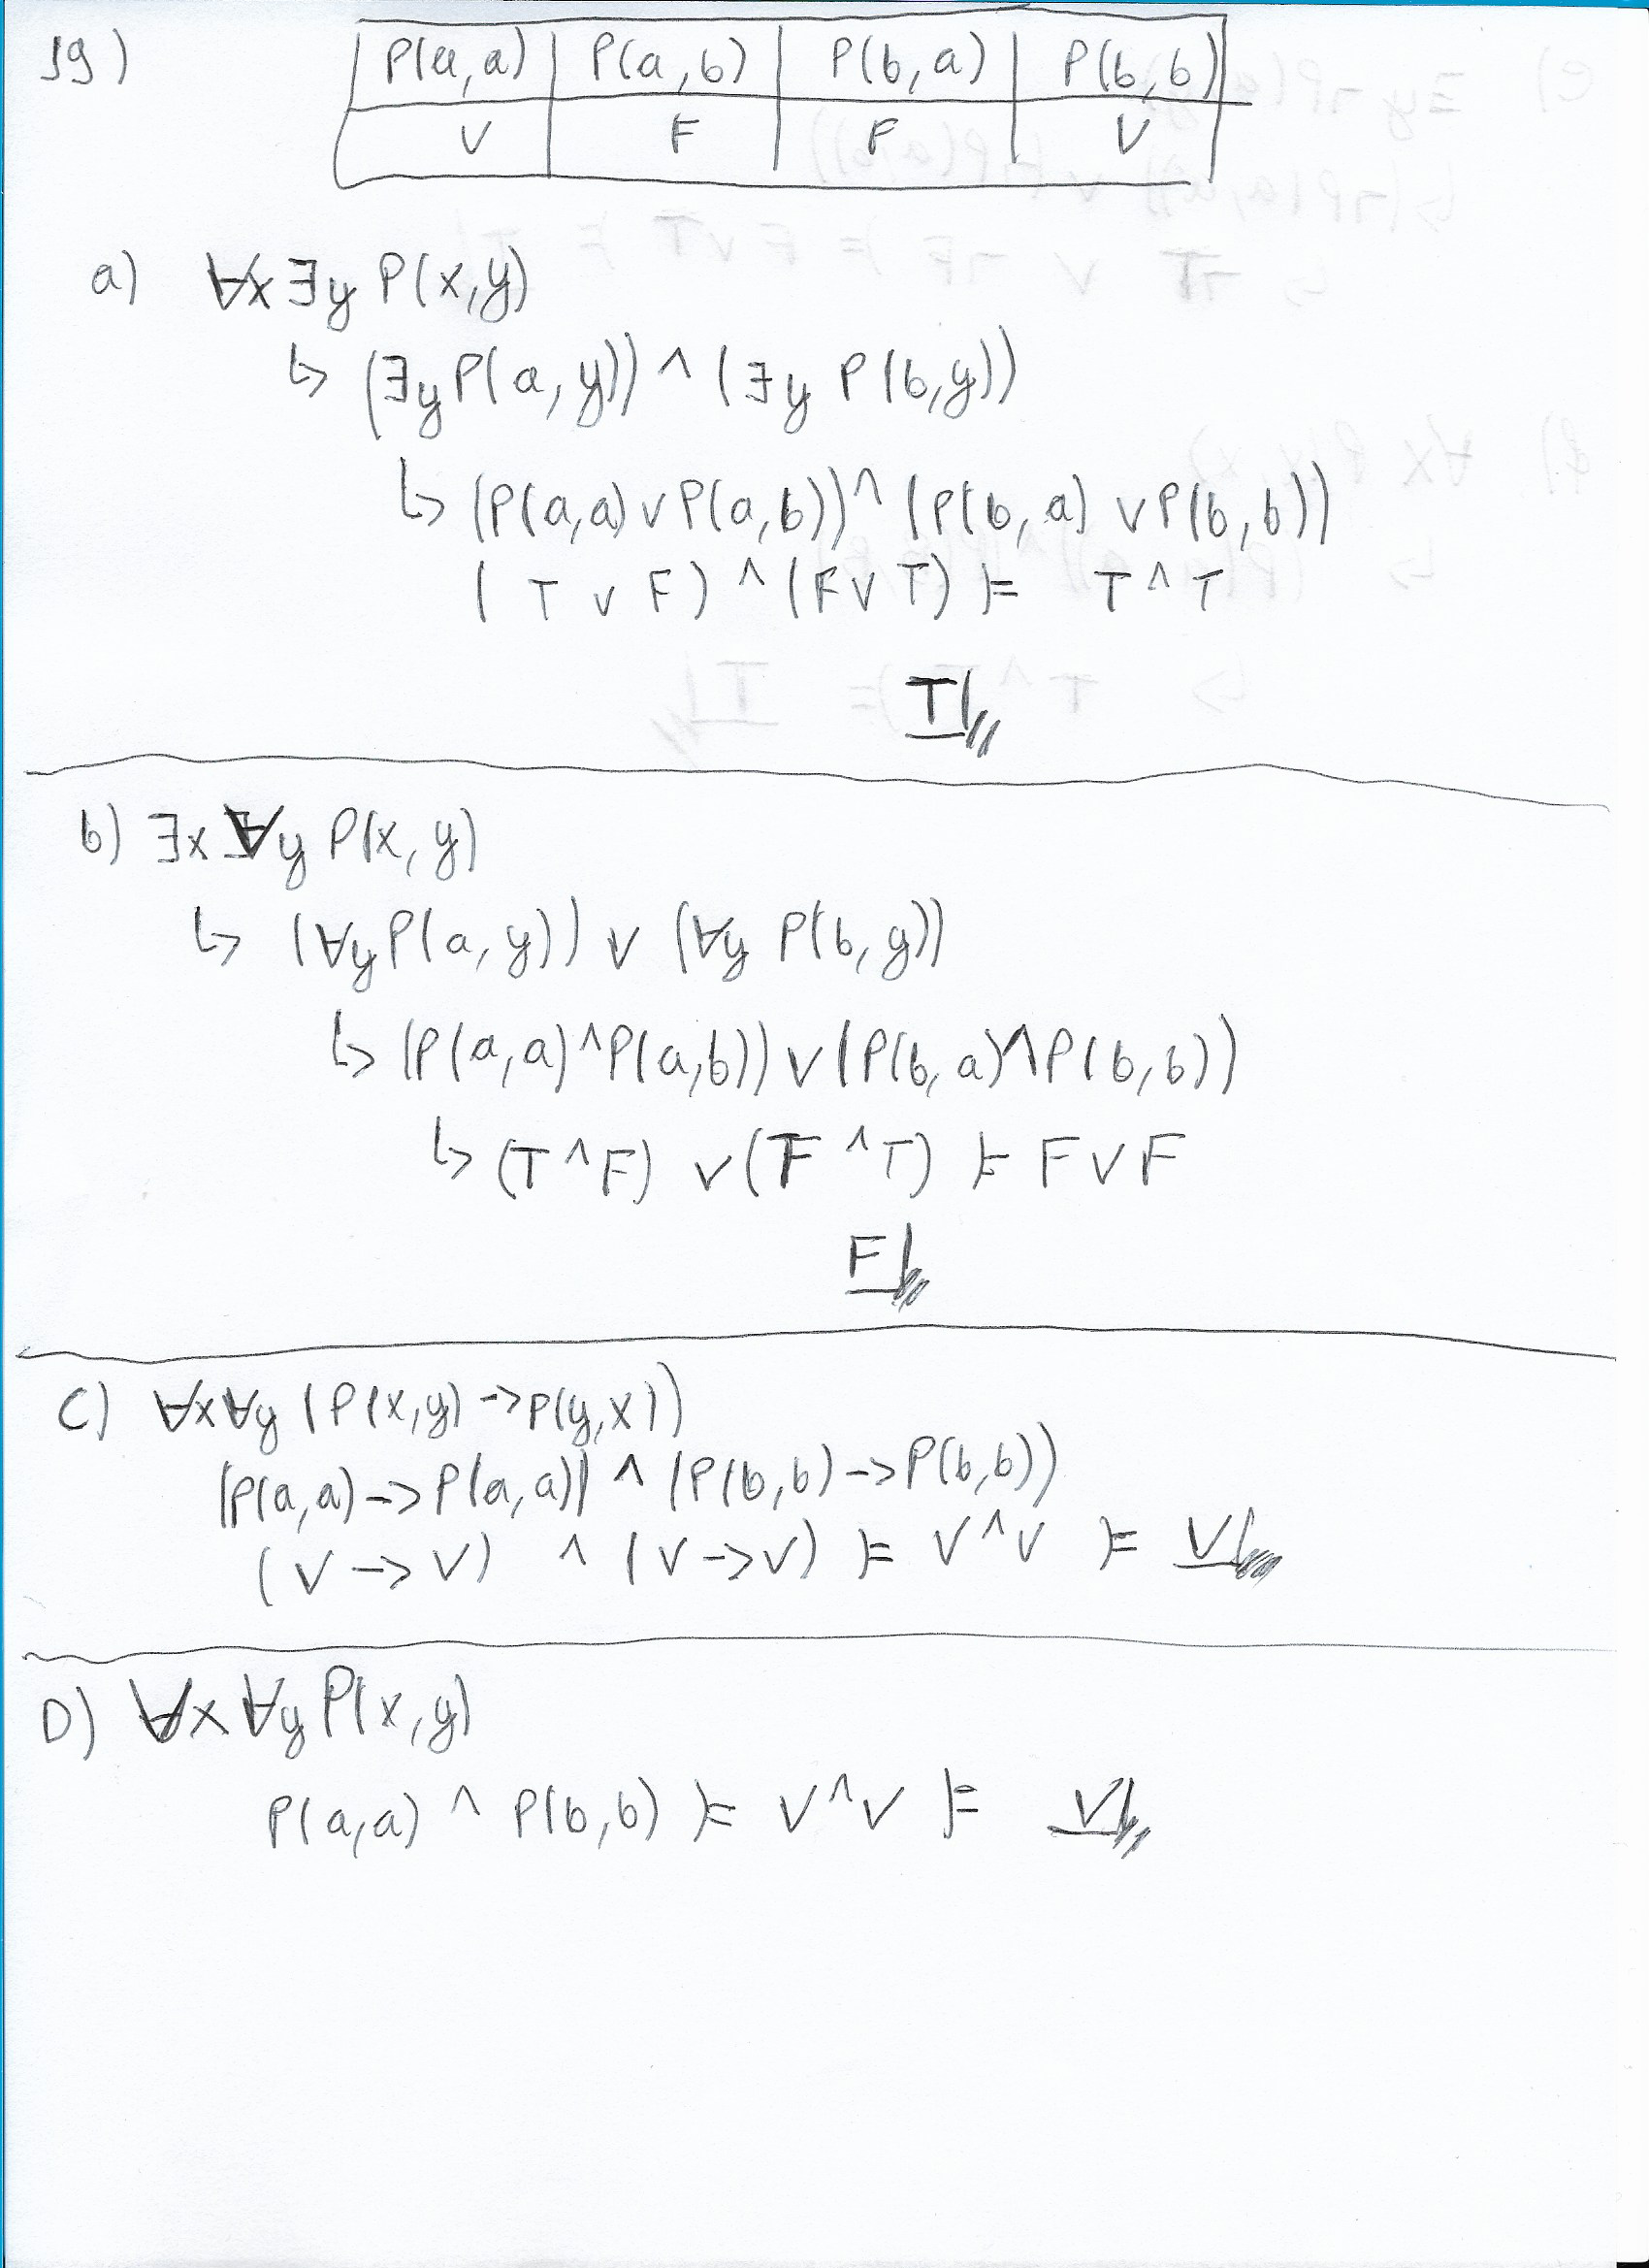 19)
P(a,a) | P(a,b) | P(b,a) | P(b,b)
V | F | F | V
a) ∀x ∃y P(x,y)
↳ (∃y P(a,y)) ^ (∃y P(b,y))
↳ (P(a,a) v P(a,b)) ^ (P(b,a) v P(b,b))
(T v F) ^ (F v T) ⊨ T ^ T
T
b) ∃x ∀y P(x,y)
↳ (∀y P(a,y)) v (∀y P(b,y))
↳ (P(a,a) ^ P(a,b)) v (P(b,a) ^ P(b,b))
↳ (T ^ F) v (F ^ T) ⊨ F v F
F
C) ∀x ∀y (P(x,y) -> P(y,x))
(P(a,a) -> P(a,a)) ^ (P(b,b) -> P(b,b))
(V -> V) ^ (V -> V) ⊨ V ^ V ⊨ V
D) ∀x ∀y P(x,y)
P(a,a) ^ P(b,b) ⊨ V ^ V ⊨ V